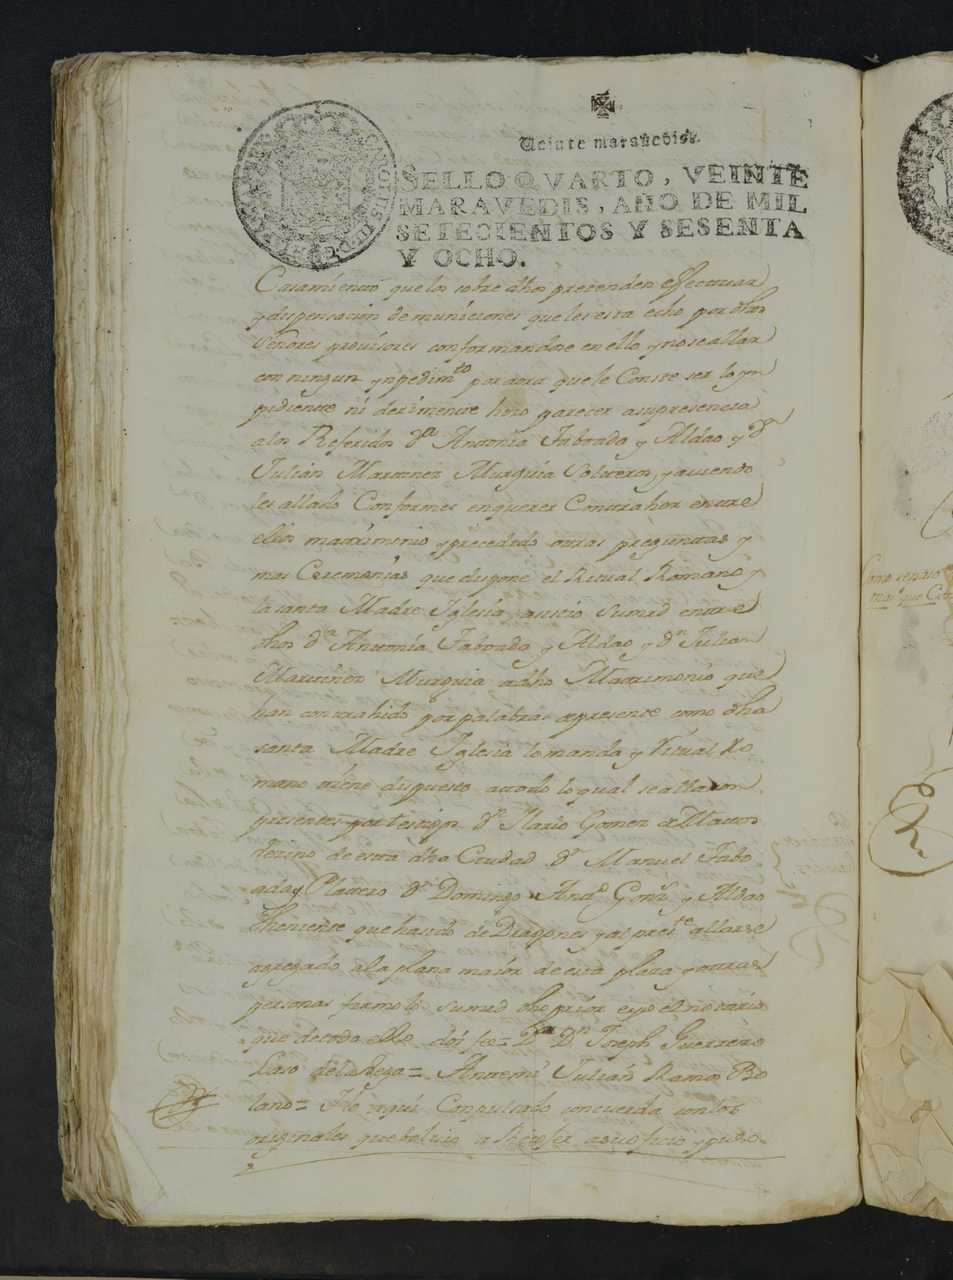 Veinte marauedis.
SELLO QVARTO, VEINTE
MARAVEDIS, AÑO DE MIL
SETECIENTOS Y SESENTA
Y OCHO.
Casamiento que los sobre dhos pretenden effectuar
y dispensacion de municiones que les esta echo por dhos
Señores provisores conformandose en ello y no se allar
con ningun ynpedim.to por aora que le Conste ser lo ym
pidiente ni derimente hizo parecer a su presencia
a los Referidos d.a Antonia Taboada y Aldao y d.n
Julián Martinez Murguia Solteros, y aviendo
les allado Conformes en querer Contrahor entre
ellos matrimonio y precedido otras preguntas y
mas Ceremonias que dispone el Ritual Romano y
la santa Madre Iglesia, asistio su mrd entre
dhos d.a Antonía Taboada y Aldao y d.n Julian
Martinez Murguia a dho Matrimonio que
han contrahido por palabras de presente como dha
santa Madre Iglesia lo manda y Ritual Ro
mano tiene dispuesto a todo lo qual se allaron
presentes por testigos d.n Ilario Gomez de Mattos
Vezino de esta dha Ciudad d.n Manuel Tabo
ada y Platero d.n Domingo And.s Gonz. y Aldao
theniente que ha sido de Dragones y al pres.te allarse
agregado a la plana maior de esta plaza y otras
personas firmolo su mrd dho prior e yo el notario
que de todo ello doi fee = D.n Joseph Guerrero
Laso de la Vega = Antemi Julián Ramos Bo
lano = Ylo aqui Conpulsado concuerda con los
originales que bolvio a Recojer a su oficio y pu
Como
mas que